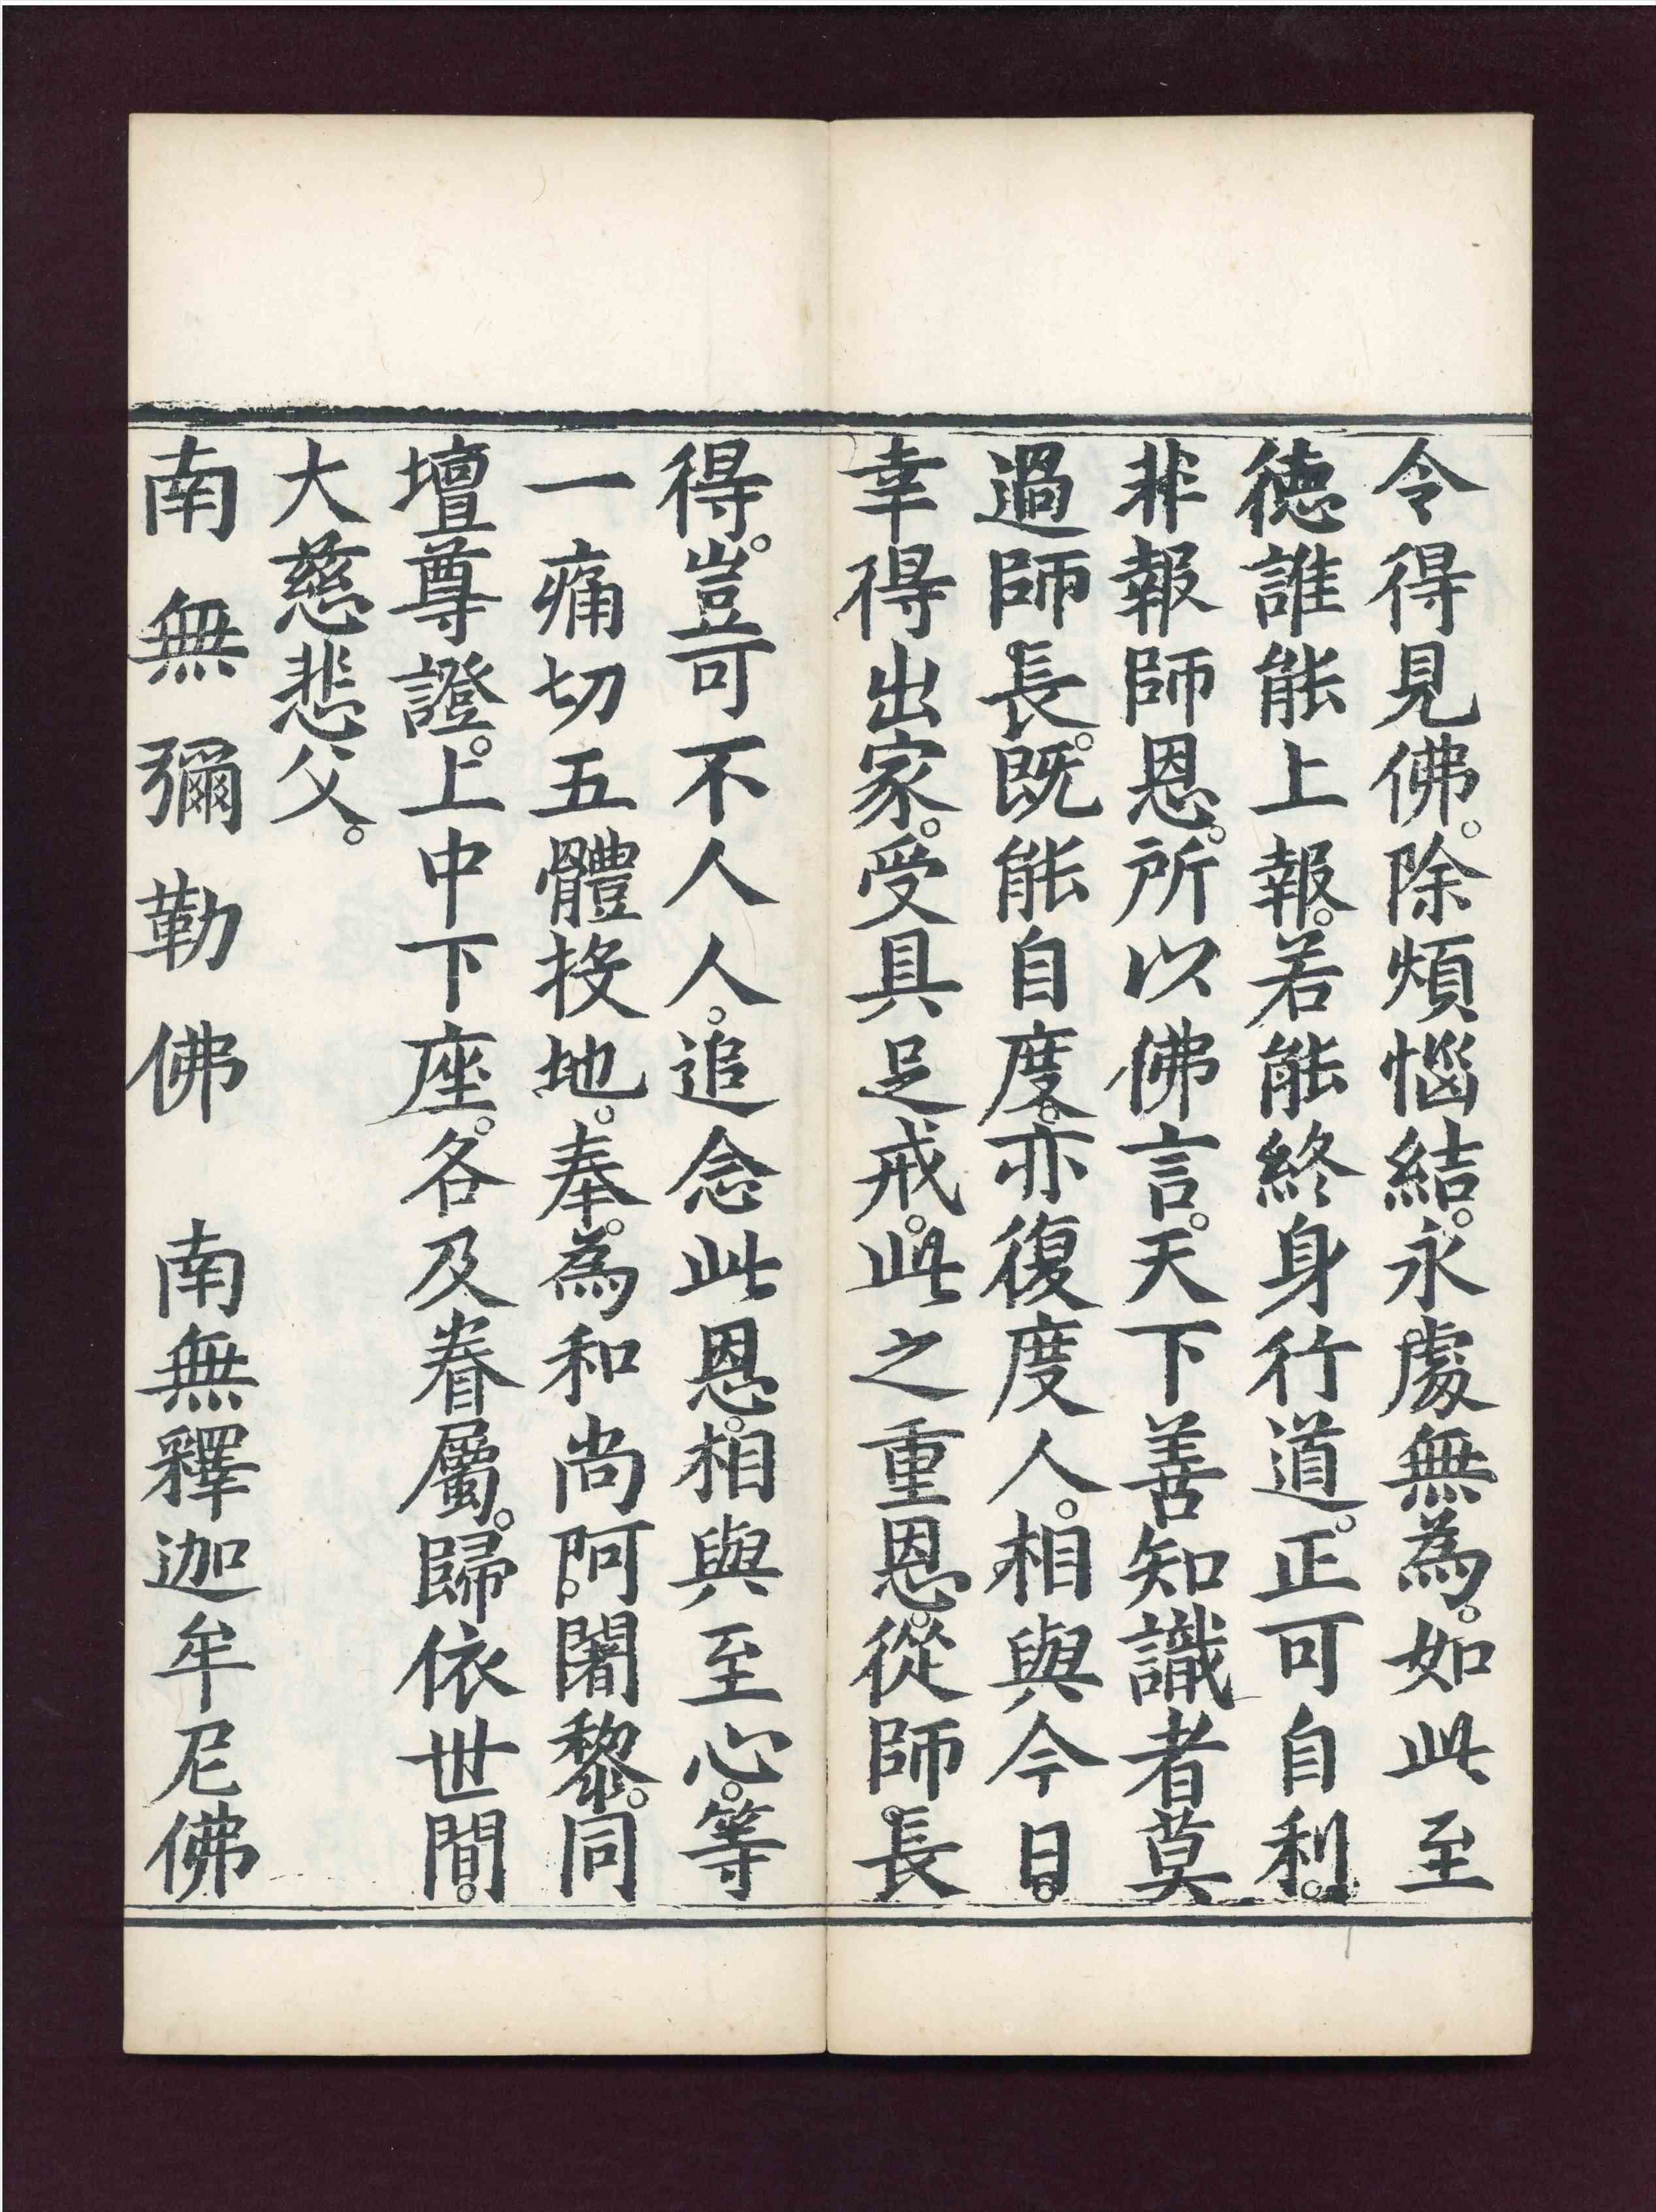 令得見佛。除煩惱結。永處無為。如此至
德誰能上報。若能終身行道。正可自利。
非報師恩。所以佛言。天下善知識者莫
過師長。既能自度。亦復度人。相與今日。
幸得出家。受具足戒。此之重恩。從師長
得。豈可不人人。追念此恩。相與至心。等
一痛切五體投地。奉。為和尚阿闍黎。同
壇尊證。上中下座。各及眷屬。歸依世間。
大慈悲父。
南無彌勒佛　南無釋迦牟尼佛